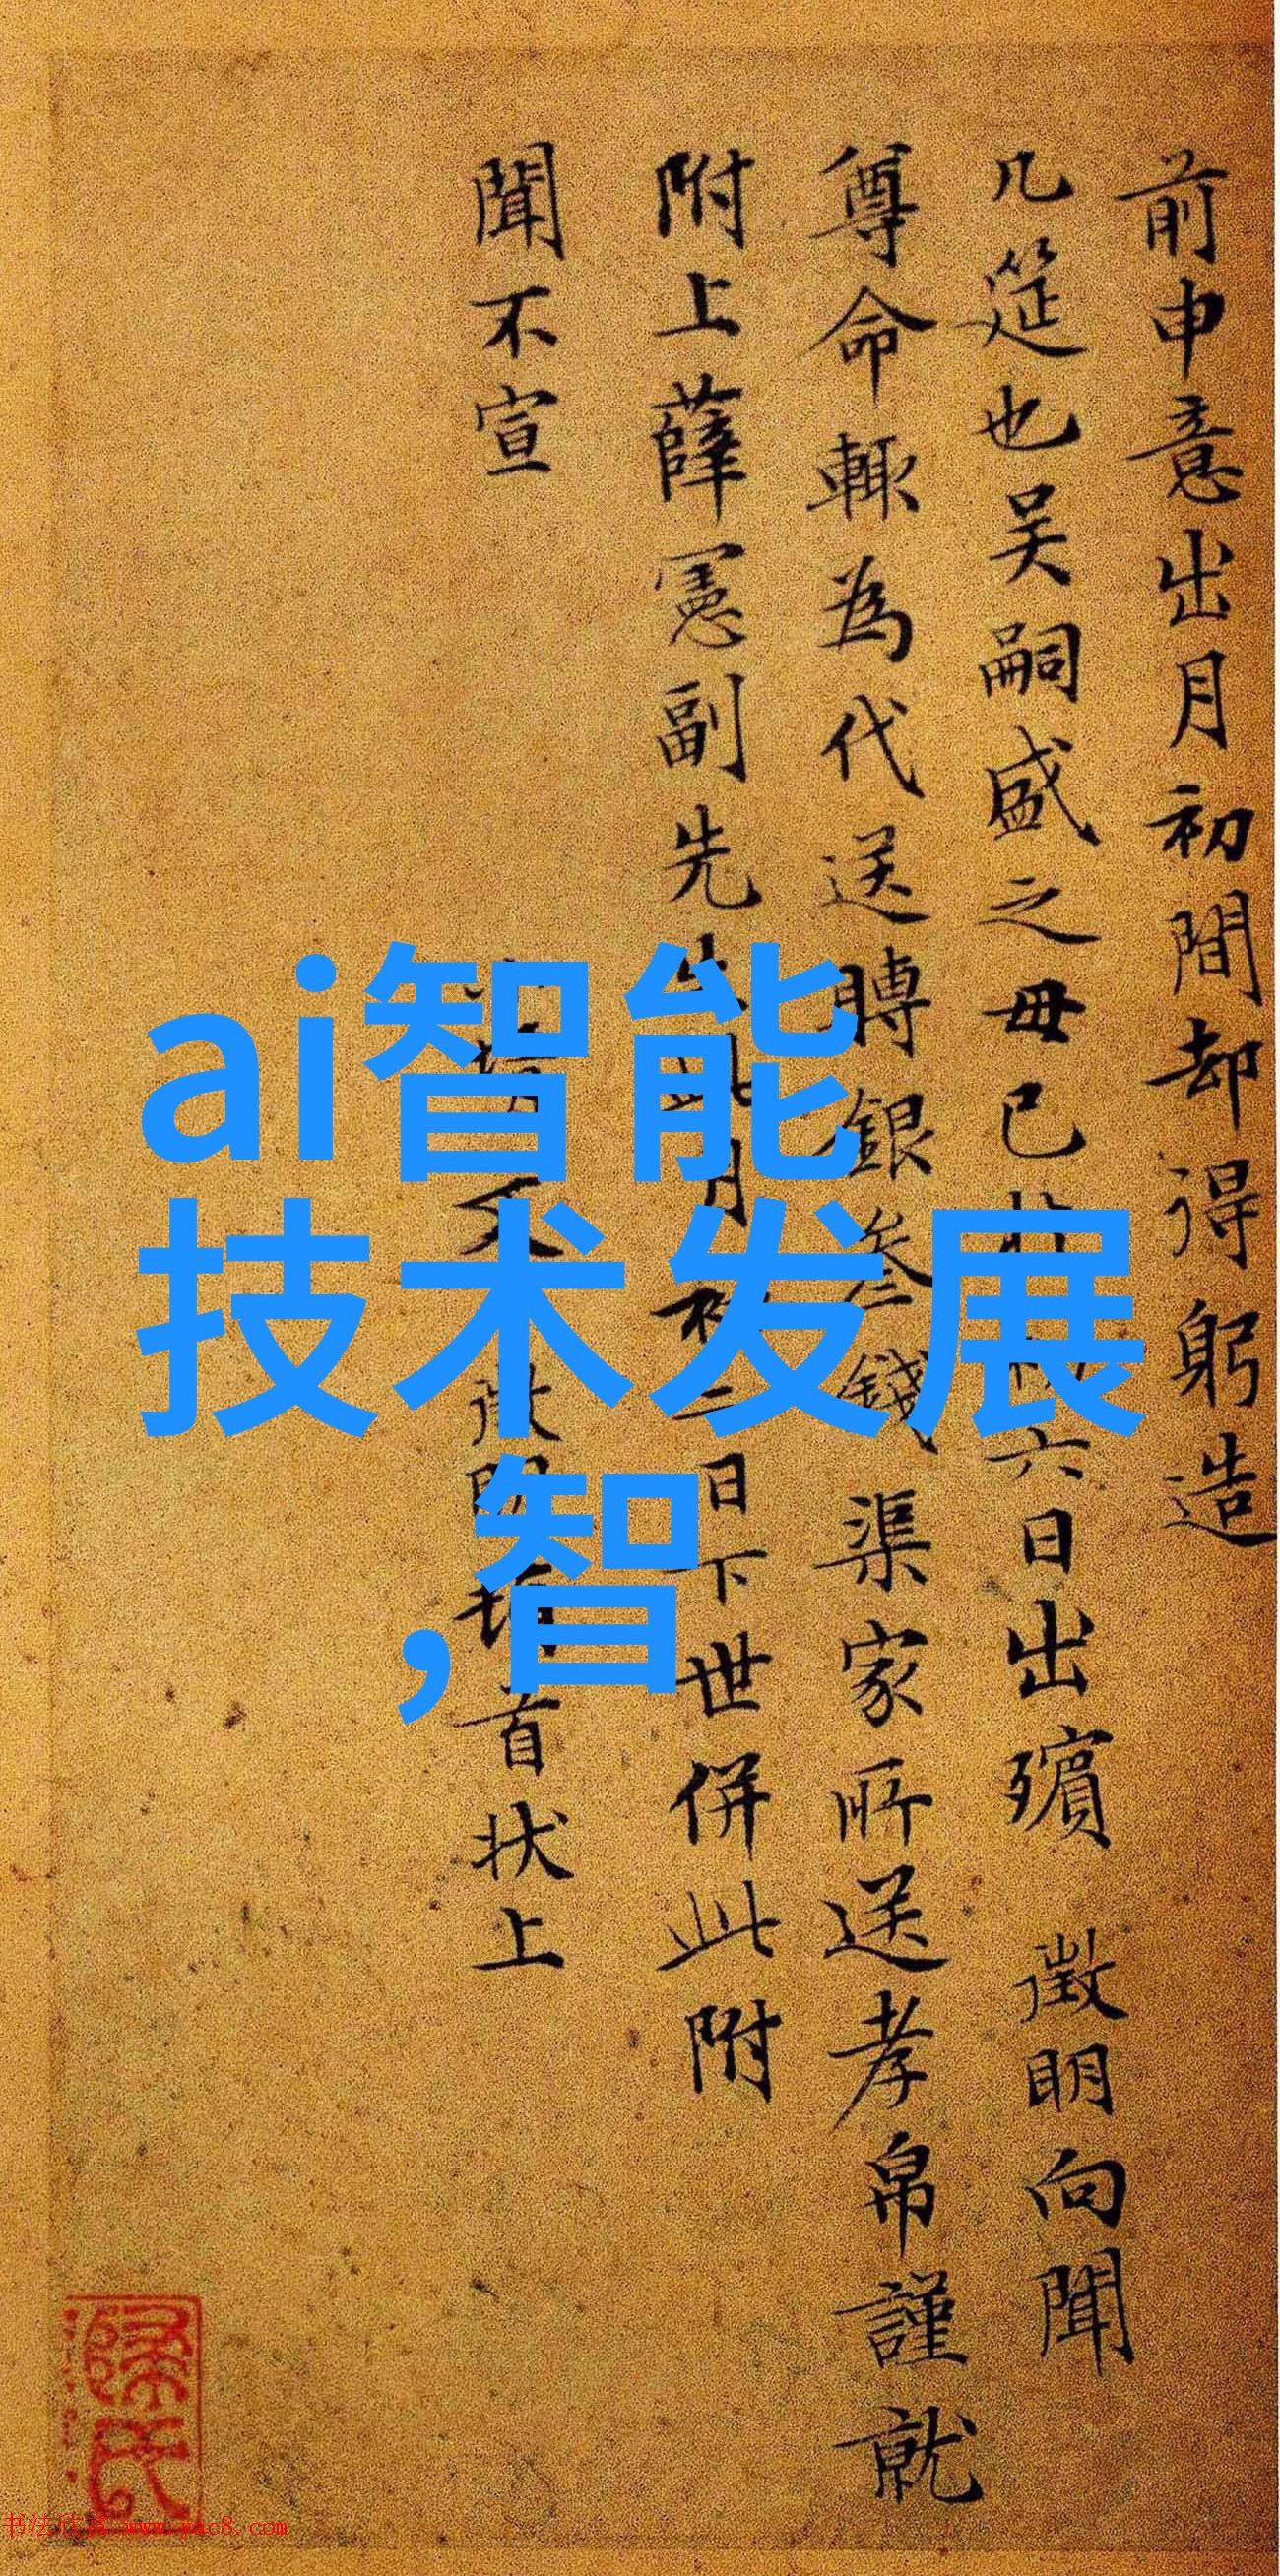 前申意出月初間却得躬造
几筵也吴嗣盛之毋已六日出殯 徵明向聞
尊命輙為代送賻銀叁錢渠家所送孝帛謹就
附上薛憲副先日下世併此附
聞不宣 首状上
ai智能
技术发展
,智
书法欣赏 www.yac8.com